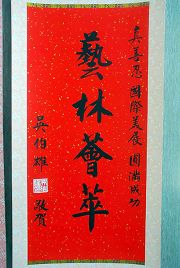 真善忍國際美展 圓滿成功
藝林薈萃
吳伯雄 敬賀